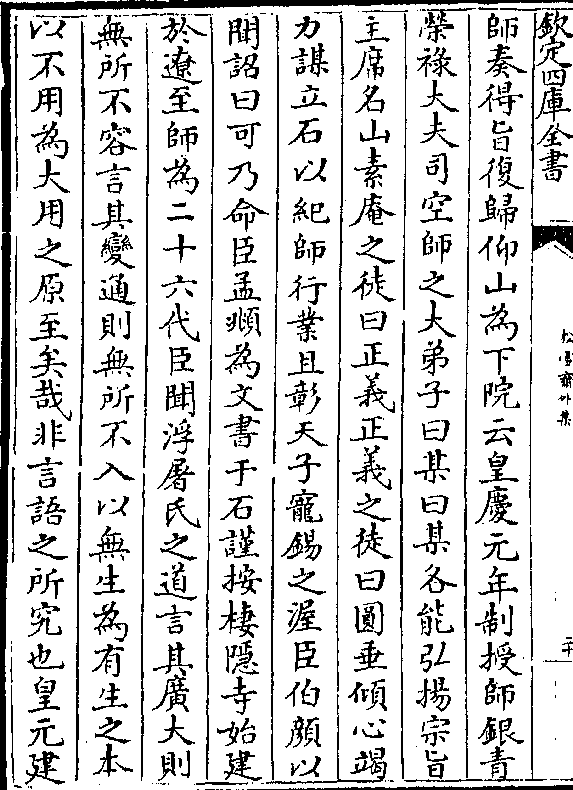 欽定四庫全書
松雪齋外集
二十
師奏得旨復歸仰山為下院云皇慶元年制授師銀青
榮祿大夫司空師之大弟子曰某曰某各能弘揚宗旨
主席名山素庵之徒曰正義正義之徒曰圓垂傾心竭
力謀立石以紀師行業且彰天子寵錫之渥臣伯顏以
聞詔曰可乃命臣孟頫為文書于石謹按棲隱寺始建
於遼至師為二十六代臣聞浮屠氏之道言其廣大則
無所不容言其變通則無所不入以無生為有生之本
以不用為大用之原至矣哉非言語之所究也皇元建